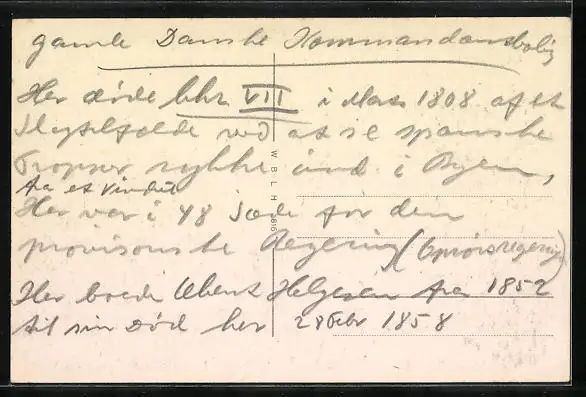 gamle Danske Kommandantbolig
Her døde Chr VII i Mars 1808 af et
Slagtilfælde ved at se spanske
Tropper rykke ind i Byen,
fra et Vindue
Her var i 48 Sæde for den
provisoriske Regering (Oprørsregering)
Her boede Oberst Helgesen fra 1852
til sin Død her 28 Febr 1858
W B L H 1816